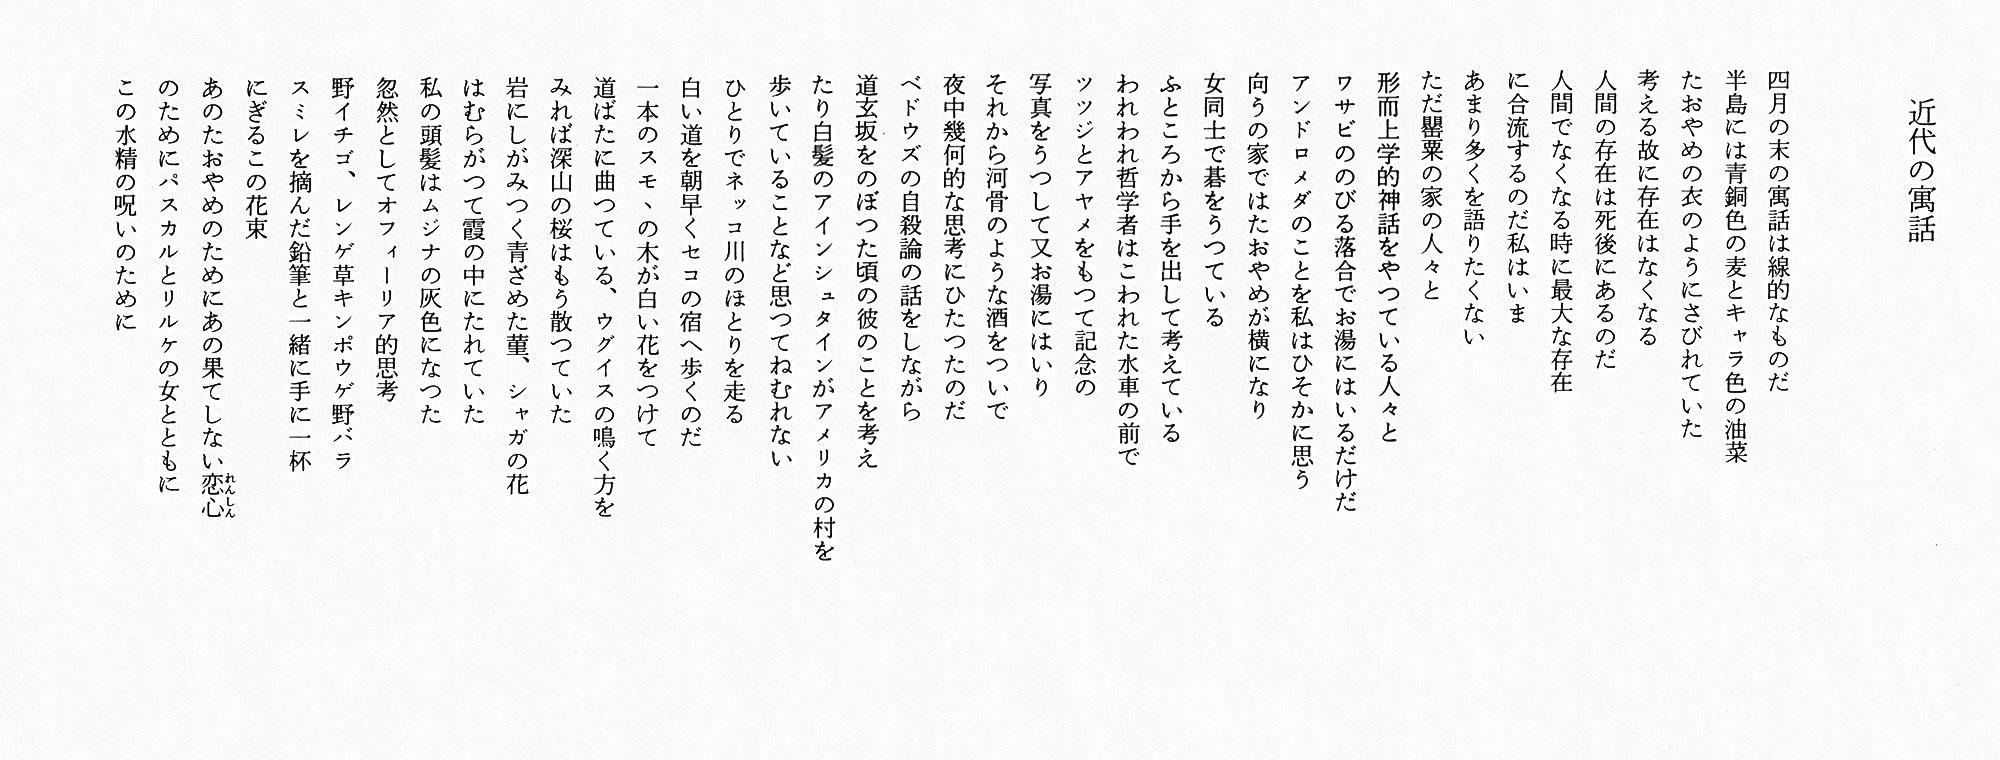 近代の寓話
四月の末の寓話は線的なものだ
半島には青銅色の麦とキャラ色の油菜
たおやめの衣のようにさびれていた
考える故に存在はなくなる
人間の存在は死後にあるのだ
人間でなくなる時に最大な存在
に合流するのだ私はいま
あまり多くを語りたくない
ただ罌粟の家の人々と
形而上学的神話をやつている人々と
ワサビののびる落合でお湯にはいるだけだ
アンドロメダのことを私はひそかに思う
向うの家ではたおやめが横になり
女同士で碁をうつている
ふところから手を出して考えている
われわれ哲学者はこわれた水車の前で
ツツジとアヤメをもつて記念の
写真をうつして又お湯にはいり
それから河骨のような酒をついで
夜中幾何的な思考にひたつたのだ
ベドウズの自殺論の話をしながら
道玄坂をのぼつた頃の彼のことを考え
たり白髪のアインシュタインがアメリカの村を
歩いていることなど思つてねむれない
ひとりでネッコ川のほとりを走る
白い道を朝早くセコの宿へ歩くのだ
一本のスモヽの木が白い花をつけて
道ばたに曲つている、ウグイスの鳴く方を
みれば深山の桜はもう散つていた
岩にしがみつく青ざめた菫、シャガの花
はむらがつて霞の中にたれていた
私の頭髪はムジナの灰色になつた
忽然としてオフィーリア的思考
野イチゴ、レンゲ草キンポウゲ野バラ
スミレを摘んだ鉛筆と一緒に手に一杯
にぎるこの花束
あのたおやめのためにあの果てしない恋心れんしん
のためにパスカルとリルケの女とともに
この水精の呪いのために